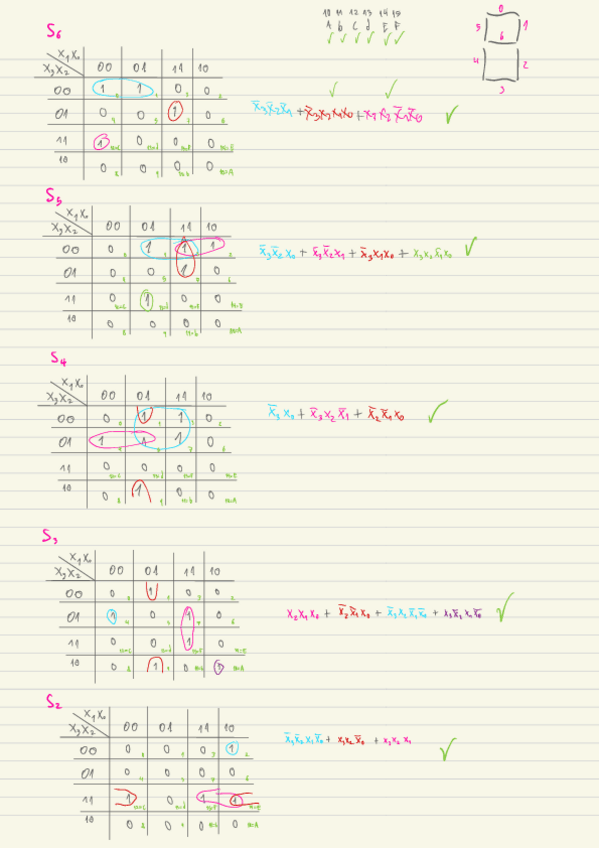 10 11 12 13 14 15
A b C d E F
✓ ✓ ✓ ✓ ✓ ✓
0
5 1
6
4 2
3
S6
X1X0
X3X2 00 01 11 10
00 1 1 0 0
01 0 0 1 0
11 1 0 0 0
10 0 0 0 0
x̄3x̄2x̄1 + x̄3x2x1x0 + x3x2x̄1x̄0 ✓
S5
X1X0
X3X2 00 01 11 10
00 0 1 1 1
01 0 0 1 0
11 0 1 0 0
10 0 0 0 0
x̄3x̄2x0 + x̄3x̄2x1 + x̄3x1x0 + x3x2x̄1x0 ✓
S4
X1X0
X3X2 00 01 11 10
00 0 1 1 0
01 1 1 1 0
11 0 0 0 0
10 0 1 0 0
x̄3x0 + x̄3x2x̄1 + x̄2x̄1x0 ✓
S3
X1X0
X3X2 00 01 11 10
00 0 1 0 0
01 1 0 1 0
11 0 0 1 0
10 0 1 0 1
x2x1x0 + x̄2x̄1x0 + x̄3x2x̄1x̄0 + x3x̄2x1x̄0 ✓
S2
X1X0
X3X2 00 01 11 10
00 0 0 0 1
01 0 0 0 0
11 1 0 1 1
10 0 0 0 0
x̄3x̄2x1x̄0 + x3x2x̄0 + x3x2x1 ✓